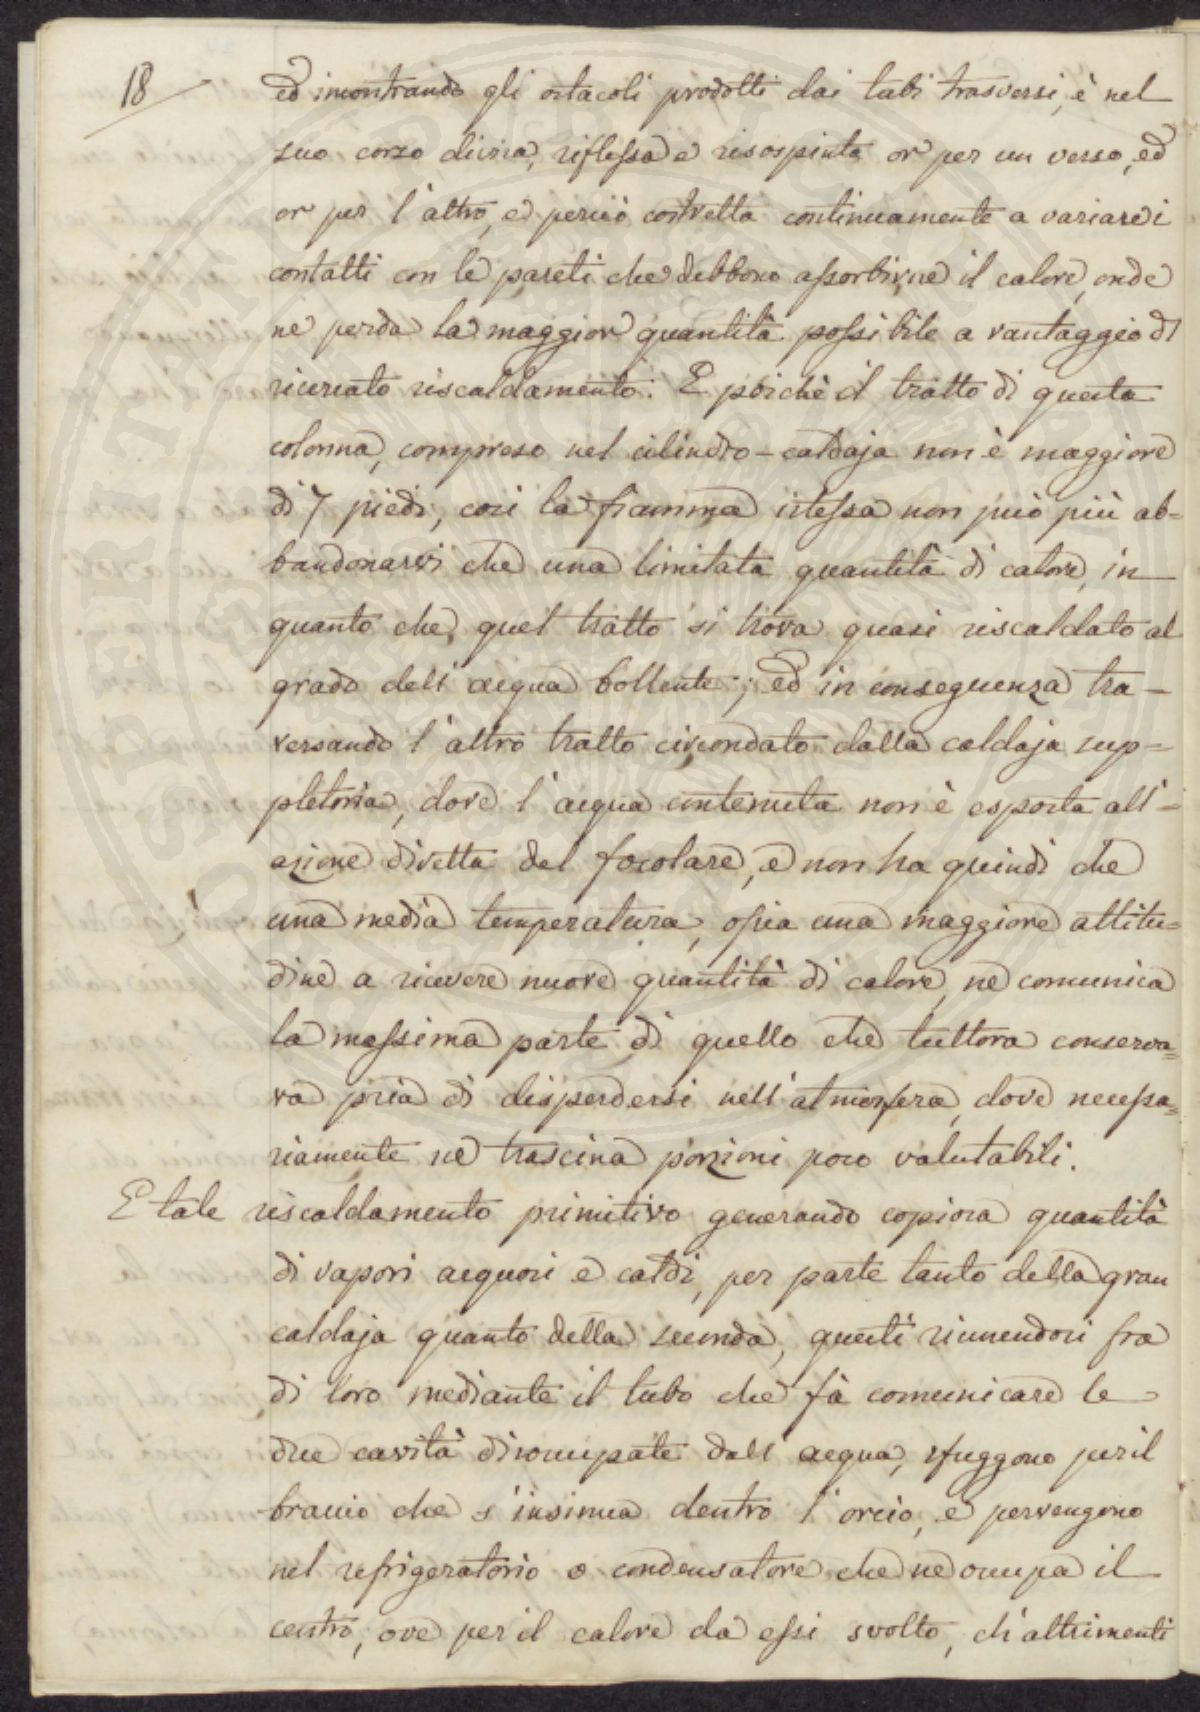 18
ed incontrando gli ostacoli prodotti dai tubi trasversi, è nel
suo corso divisa, riflessa e risospinta or per un verso, ed
or per l'altro, e perciò costretta continuamente a variare i
contatti con le pareti che debbono assorbirne il calore, onde
ne perda la maggior quantità possibile a vantaggio di
ricercato riscaldamento. E poichè il tratto di questa
colonna, compreso nel cilindro-caldaja non è maggiore
di 7 piedi, così la fiamma istessa non può più ab=
bandonarvi che una limitata quantità di calore, in
quanto che, quel tratto si trova quasi riscaldato al
grado dell'acqua bollente; ed in conseguenza tra-
versando l'altro tratto circondato dalla caldaja sup=
pletoria, dove l'acqua contenuta non è esposta all'=
azione diretta del focolare, e non ha quindi che
una media temperatura, ossia una maggiore attitu=
dine a ricevere nuove quantità di calore, ne comunica
la massima parte di quello che tuttora conserva=
va pria di disperdersi nell'atmosfera, dove necessa=
riamente ne trascina porzioni poco valutabili.
E tale riscaldamento primitivo generando copiosa quantità
di vapori acquosi e caldi, per parte tanto della gran
caldaja quanto della seconda, questi riunendosi fra
di loro mediante il tubo che fà comunicare le
due cavità disoccupate dall'acqua, sfuggono per il
braccio che s'insinua dentro l'orcio, e pervengono
nel refrigeratorio o condensatore che ne occupa il
centro, ove per il calore da essi svolto, ch'altrimenti